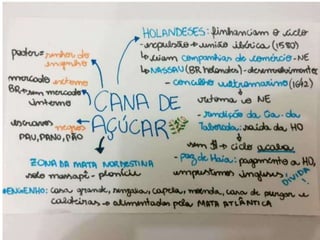 HOLANDESES: financiam o ciclo
- expulsão → união ibérica (1580)
↳ criam companhias de comércio - NE
↳ NASSAU (BR holandês) - desenvolvimento
- conselho ultramarino (1642)
retoma o NE
- rendição da Ga. da
Taborda: saída da HO
sem $ → ciclo acaba
- paz de Haia: pagamento a HO,
empréstimos ingleses,
DÍVIDA!
poder = senhor do
engenho
mercado externo
BR → sem mercado
interno
escravos negros
PAU, PANO, PÃO
CANA DE
AÇÚCAR
ZONA DA MATA NORDESTINA
solo massapê - planície
*ENGENHO: casa grande, senzala, capela, moenda, casa de purgar e
caldeiras → alimentadas pela MATA ATLÂNTICA